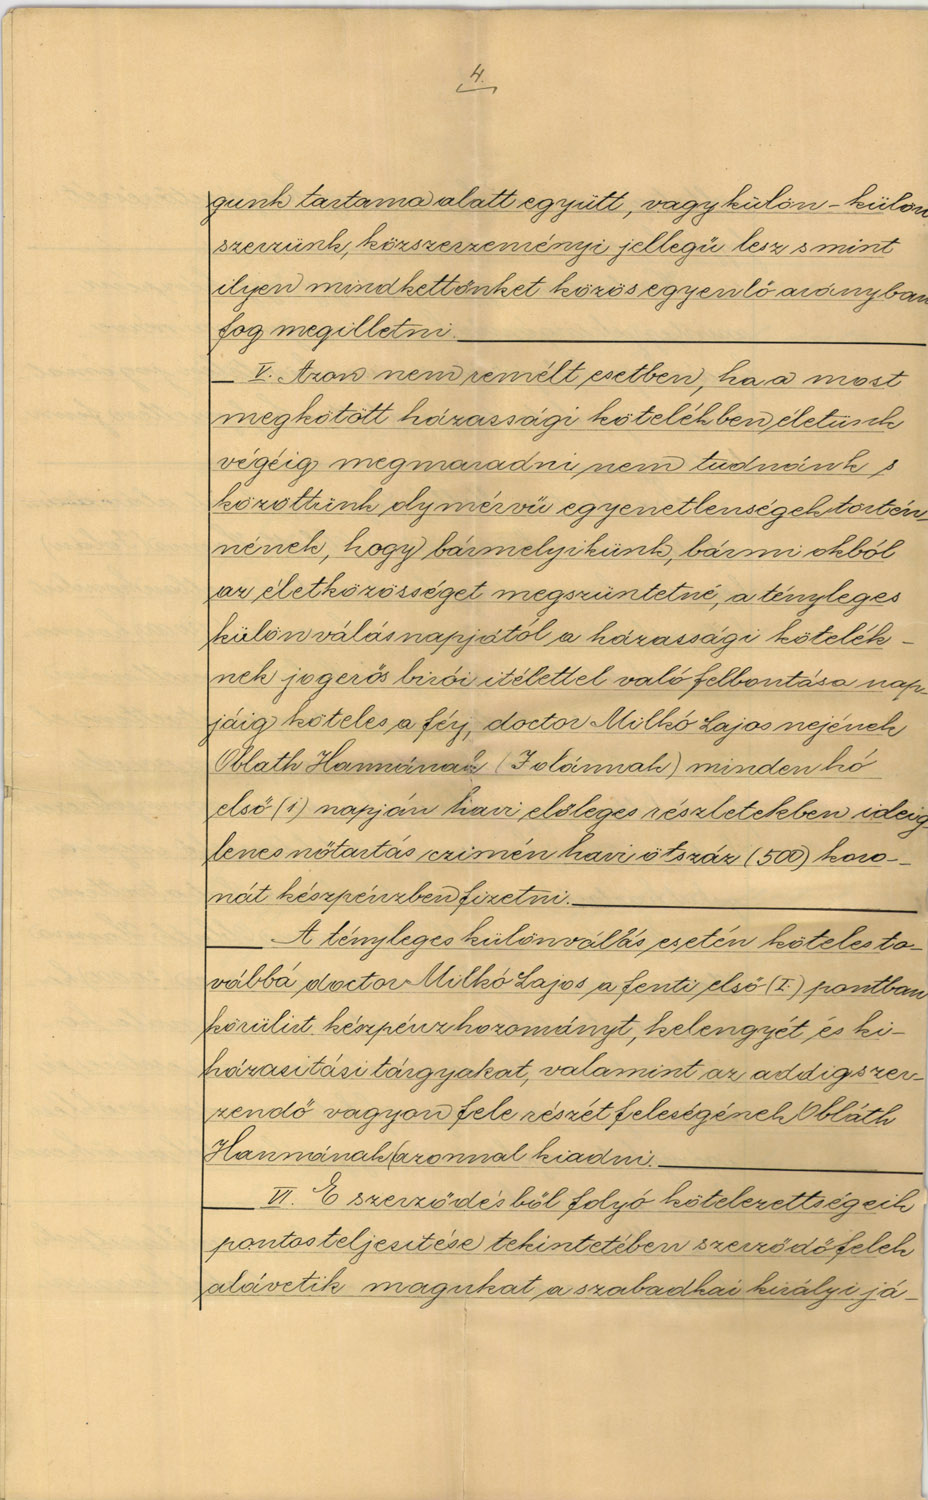 4.
gunk tartama alatt együtt, vagy külön-külön
szerzünk, közszerzeményi jellegű lesz s mint
ilyen mindkettőnket közös egyenlő arányban
fog megilletni.
V. Azon nem remélt esetben, ha a most
megkötött házassági kötelékben életünk
végéig megmaradni nem tudnánk s
közöttünk olymérvű egyenetlenségek történ-
nének, hogy bármelyikünk, bármi okból
az életközösséget megszüntetné, a tényleges
különválás napjától a házassági kötelék-
nek jogerős birói itélettel való felbontása nap-
jáig köteles a féy, doctor Milkó Lajos nejének
Oblath Hannának (Jolánnak) minden hó
első (1) napján havi előleges részletekben ideig
lenes nőtartás czimén havi ötszáz (500) koro-
nát készpénzben fizetni.
A tényleges különválás esetén köteles to-
vábbá doctor Milkó Lajos a fenti első (I.) pontban
körülirt készpénz hozományt, kelengyét és ki-
házasitási tárgyakat, valamint az addig szer-
zendő vagyon fele részét feleségének Obláth
Hannának azonnal kiadni.
VI. E szerződésből folyó kötelezettségeik
pontos teljesitése tekintetében szerződő felek
alávetik magukat a szabadkai királyi já-